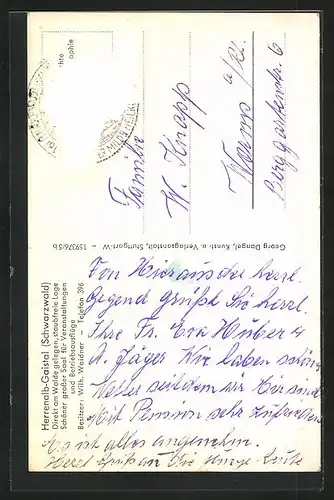 Herrenalb-Gaistal (Schwarzwald)
Direkt am Walde gelegen, staubfreie Lage
Schöner großer Saal für Veranstaltungen
und Betriebsausflüge
Besitzer: Wilh. Waidner Telefon 396
Georg Dangel, Kunst- u. Verlagsanstalt, Stuttgart-W – 159376/5b
Familie
W. Knapp
Worms a/Rh.
Berggartenstr. 6
Von Hier aus der herrl.
Gegend grüßt Sie herzl.
Ihre Fr. Eva Huber u
A. Jäger Wir haben schönes
Wetter seitdem wir hier sind
Mit Pension sehr zufrieden
es ist alles angenehm.
Herzl. Grüße an die